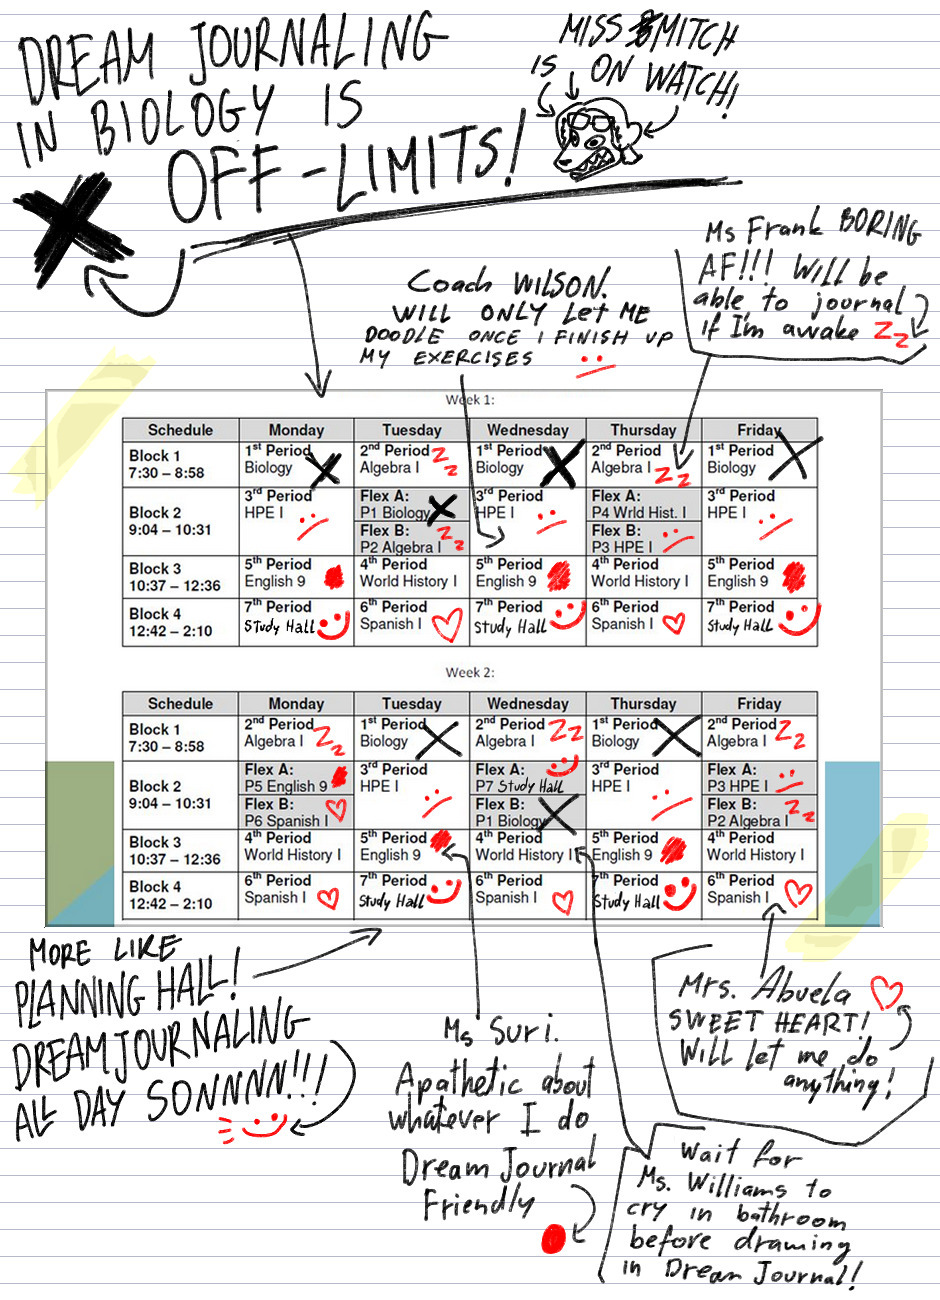 DREAM JOURNALING
IN BIOLOGY IS
OFF-LIMITS!
MISS SMITCH
IS ON WATCH!
Ms Frank BORING
AF!!! Will be
able to journal
if I'm awake Zz
Coach WILSON.
WILL ONLY LET ME
DOODLE ONCE I FINISH UP
MY EXERCISES
Week 1:
Schedule Monday Tuesday Wednesday Thursday Friday
Block 1 7:30 – 8:58
1st Period Biology
2nd Period Algebra I Zz
1st Period Biology
2nd Period Algebra I Zz
1st Period Biology
Block 2 9:04 – 10:31
3rd Period HPE I
Flex A: P1 Biology
Flex B: P2 Algebra I Zz
3rd Period HPE I
Flex A: P4 Wrld Hist. I
Flex B: P3 HPE I
3rd Period HPE I
Block 3 10:37 – 12:36
5th Period English 9
4th Period World History I
5th Period English 9
4th Period World History I
5th Period English 9
Block 4 12:42 – 2:10
7th Period Study Hall
6th Period Spanish I
7th Period Study Hall
6th Period Spanish I
7th Period Study Hall
Week 2:
Schedule Monday Tuesday Wednesday Thursday Friday
Block 1 7:30 – 8:58
2nd Period Algebra I Zz
1st Period Biology
2nd Period Algebra I ZZ
1st Period Biology
2nd Period Algebra I Zz
Block 2 9:04 – 10:31
Flex A: P5 English 9
Flex B: P6 Spanish I
3rd Period HPE I
Flex A: P7 Study Hall
Flex B: P1 Biology
3rd Period HPE I
Flex A: P3 HPE I
Flex B: P2 Algebra I Zz
Block 3 10:37 – 12:36
4th Period World History I
5th Period English 9
4th Period World History I
5th Period English 9
4th Period World History I
Block 4 12:42 – 2:10
6th Period Spanish I
7th Period Study Hall
6th Period Spanish I
7th Period Study Hall
6th Period Spanish I
MORE LIKE
PLANNING HALL!
DREAM JOURNALING
ALL DAY SONNNN!!!
Ms Suri.
Apathetic about
whatever I do
Dream Journal
Friendly
Mrs. Abuela
SWEET HEART!
Will let me do
anything!
Wait for
Ms. Williams to
cry in bathroom
before drawing
in Dream Journal!